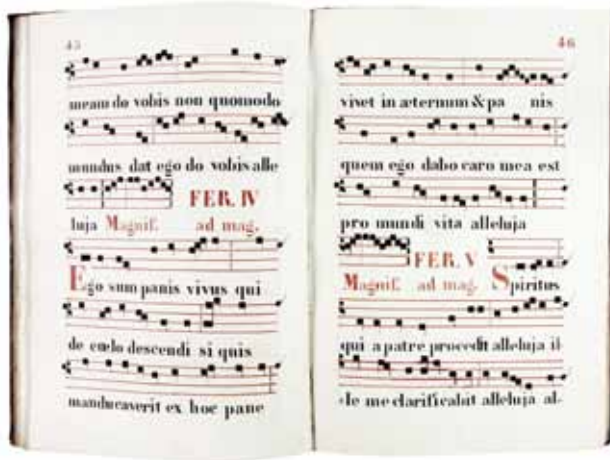 45
meam do vobis non quomodo
mundus dat ego do vobis alle
FER. IV
luja Magnif. ad mag.
Ego sum panis vivus qui
de cœlo descendi si quis
manducaverit ex hoc pane
46
vivet in æternum & pa nis
quem ego dabo caro mea est
pro mundi vita alleluja
FER. V
Magnif. ad mag. Spiritus
qui a patre procedit alleluja il-
-le me clarificabit alleluja al-